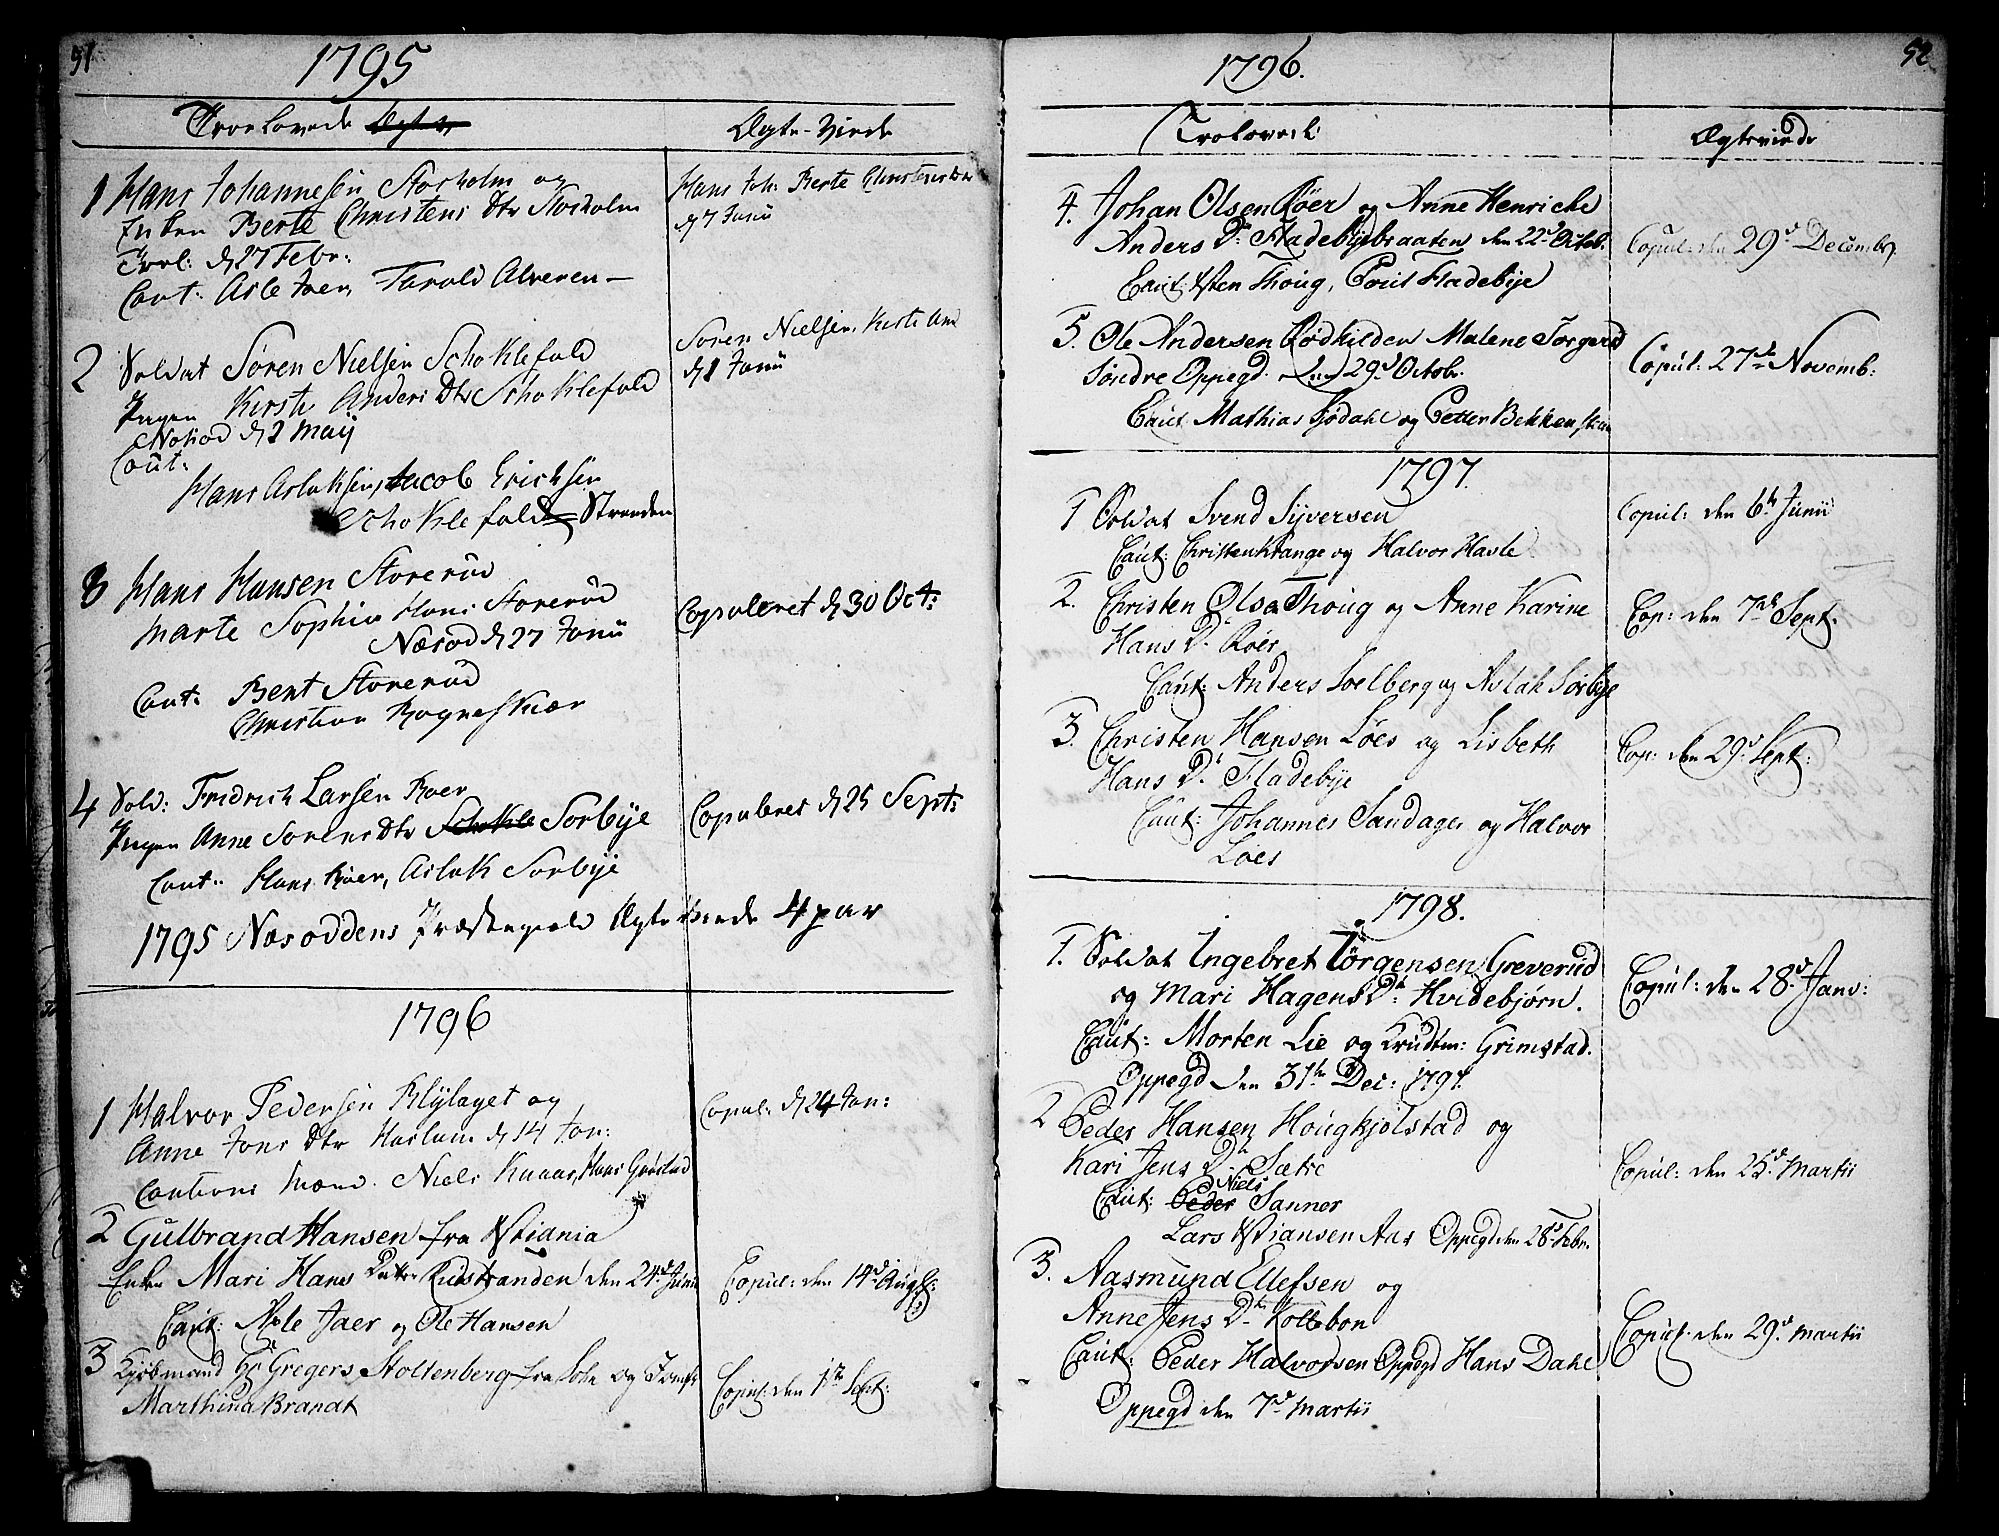 51
1795
Troelovede
Ægte-Viede
1 Hans Johannesen Storholm og
Enken Berte Christens Dtr Storholm
Trol: d 27 Febr:
Caut: Asle Jaer, Tarald Alveren
Hans Joh: Berte Christensdtr
d 7 Junii
2 Soldat Søren Nielsen Schoklefald
Pigen Kirsti Anders Dtr Schoklefald
Nesod d 2 Maij
Caut:
Hans Aslaksen, Jacob Erichsen
Schoklefald Stranden
Søren Nielsen, Kirsti And
d 1 Junii
3 Hans Hansen Storerud
Marte Sophia Hans Storerud
Næsod d 27 Junii
Caut: Bent Storerud
Christian Bogneskiær
Copuleret d 30 Oct:
4 Sold: Fridrich Larsen Roer
Pigen Anne Sørens Dtr Schokle Sorbye
Caut: Hans Roer, Aslak Sorbye
Copuleret d 25 Sept:
1795 Næsoddens Præstegield Ægteviede 4 par
1796
1 Halvor Pedersen Blylaget og
Anne Jons Dtr Haslum d 14 Jan:
Cautions Mænd. Niels Knaar, Hans
Copul: d 24 Jan:
2 Gulbrand Hansen fra Xstiania
Enken Mari Hans Datter Rudstranden den 24d Junii
Caut: Asle Jaer og Ole Hansen
Copul: den 14d Aug:
3 Kjøbmand Hr Gregers Stoltenberg fra og Jomfr
Marthina Brandt
Copul: den 1te Sept:
52
1796.
Trolovede
Ægteviede
4. Johan Olsen Röer og Anne Henricke
Anders Dr Fladebyebraaten den 22d Octob.
Caut: Østen Houg, Poul Fladebye
Copul: den 29d Decembr
5. Ole Andersen Rødkilden Malene Torgersd
Søndre Oppegd. den 29d Octobr.
Caut Mathias Sjødahl og Petter Bekkensteen
Copul: 27de Novemb:
1797.
1 Soldat Svend Syversen
Caut: Christen Krange og Halvor Havle
Copul: den 6te Junii
2. Christen Olsen Houg og Anne Karine
Hans Dr Röer
Caut: Anders Soelberg og Aslak Sørbye
Cop: den 7de Sept.
3. Christen Hansen Löes og Lisbeth
Hans Dr Fladebye
Caut: Johannes Sandager og Halvor
Löes
Cop: den 29d Sept:
1798.
1. Soldat Ingebret Jörgensen Greverud
og Mari Hagens Dr: Hvidebjørn.
Caut: Morten Lie og Krudtm: Grimstad.
Oppegd den 31te Dec: 1797.
Copul: den 28d Janv:
2 Peder Hansen Hougkjölstad og
Kari Jens Dr Sætre
Niels
Caut: Peder Sanner
Lars Xstiansen Aas Oppegd den 28d Febr.
Copul: den 25d Martii
3. Aasmund Ellefsen og
Anne Jens Dr Kolbbon
Caut: Peder Halvorsen Oppegd Hans Dahl
Oppegd den 7d Martii
Copul: den 29d Martii